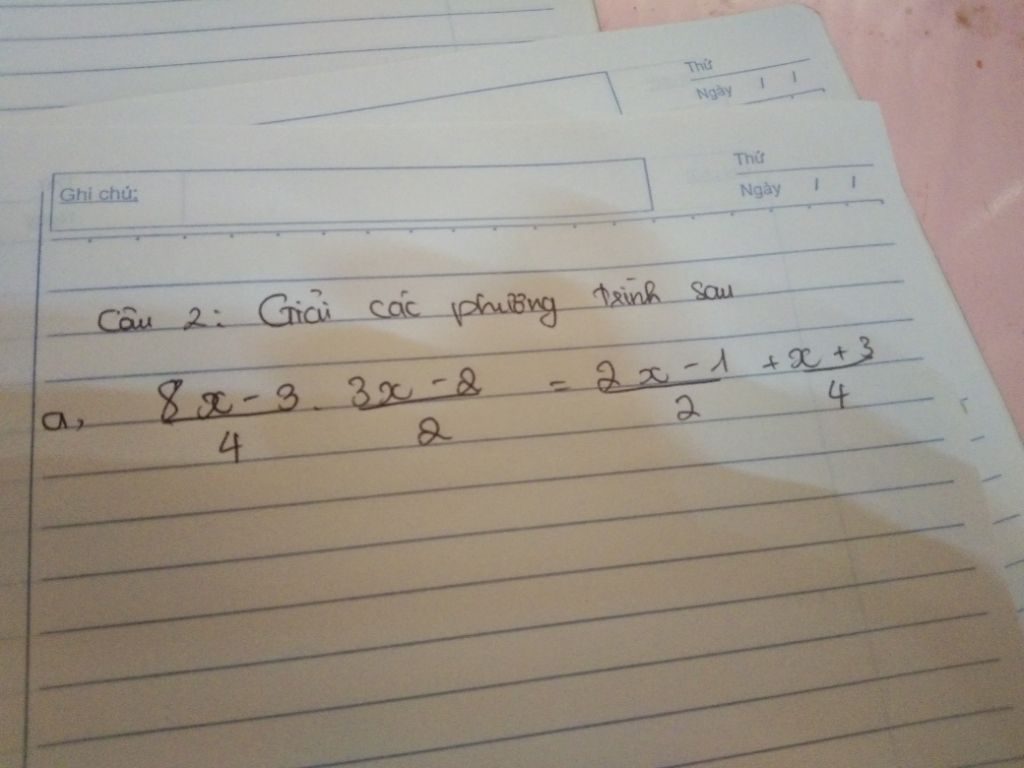 Thứ
Ngày / /
Thứ
Ghi chú:
Ngày / /
Câu 2: Giải các phương trình sau
a, (8x - 3)/4 . (3x - 2)/2 = (2x - 1)/2 + (x + 3)/4